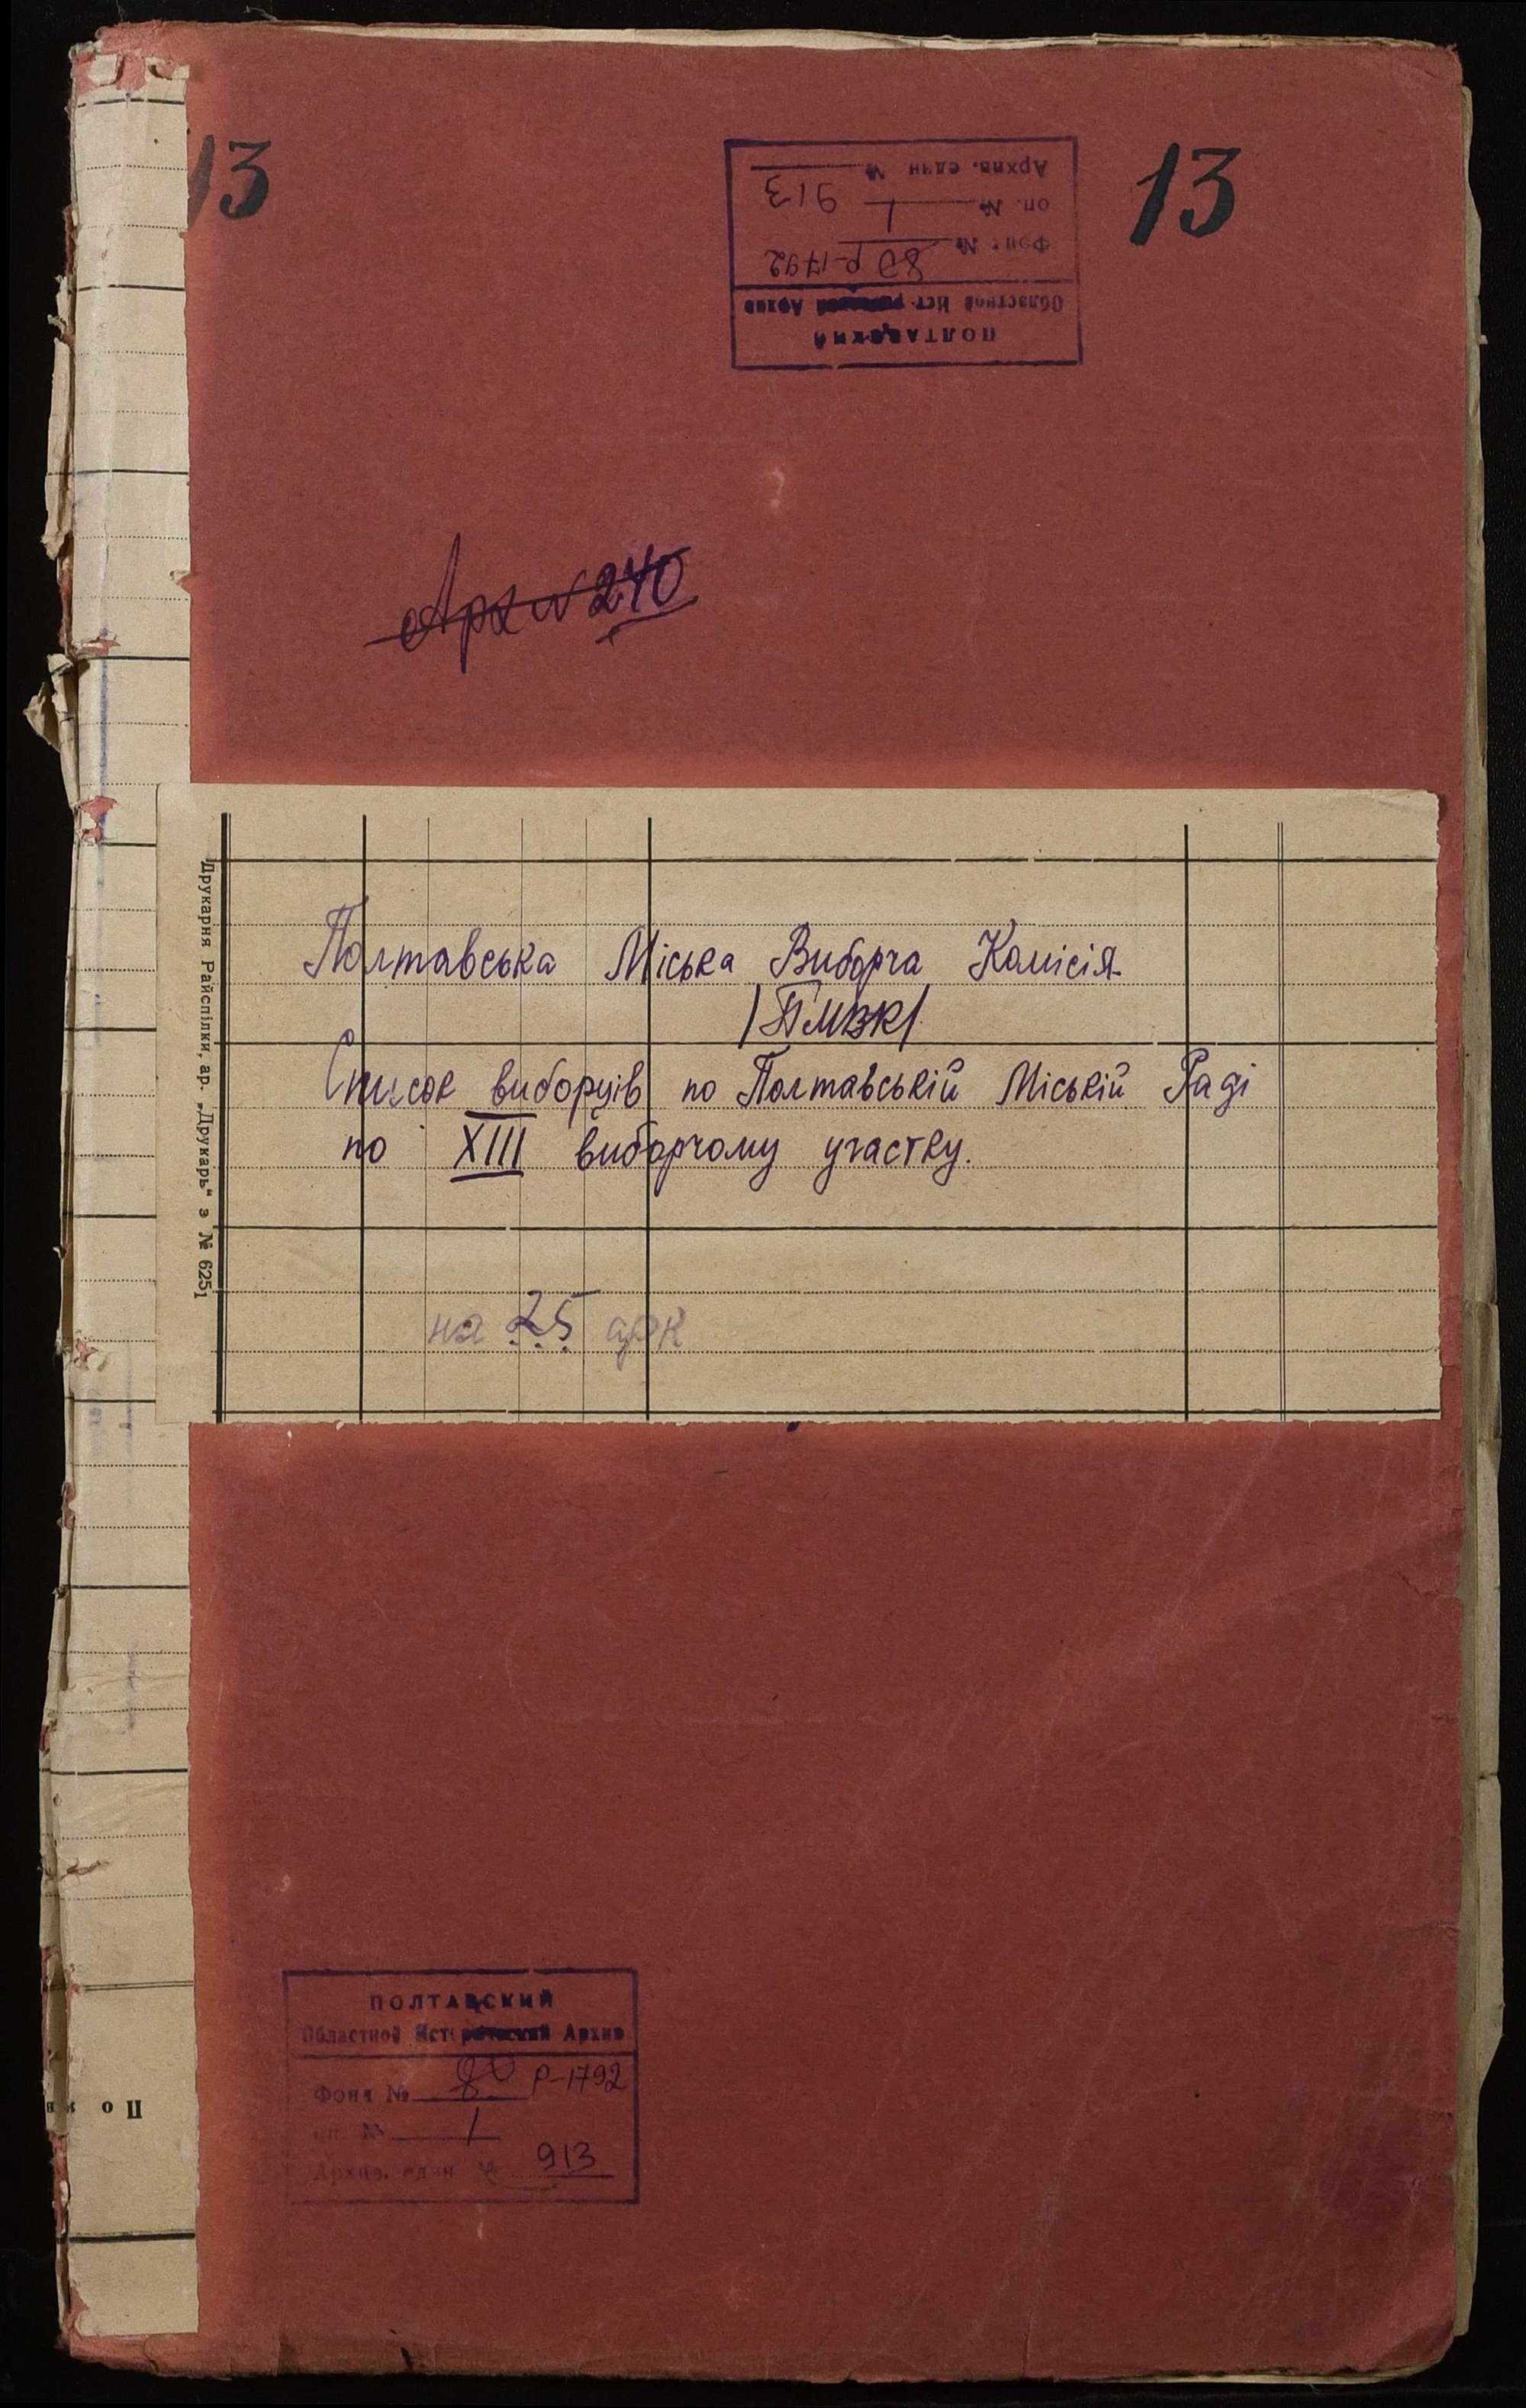 13
13
Архив. един №
913
оп. №
1
Фонд №
80 р-1792
Областной Исторический Архив
ПОЛТАВСКИЙ
Арх № 240
Друкарня Райспілки, ар. „Друкарь“ з № 6251
Полтавська Міська Виборча Комісія
/ПМВК/
Список виборців по Полтавській Міській Раді
по XIII виборчому участку.
на 25 арк
ПОЛТАВСКИЙ
Областной Исторический Архив
Фонд № 80 р-1792
оп. № 1
Архив. един № 913